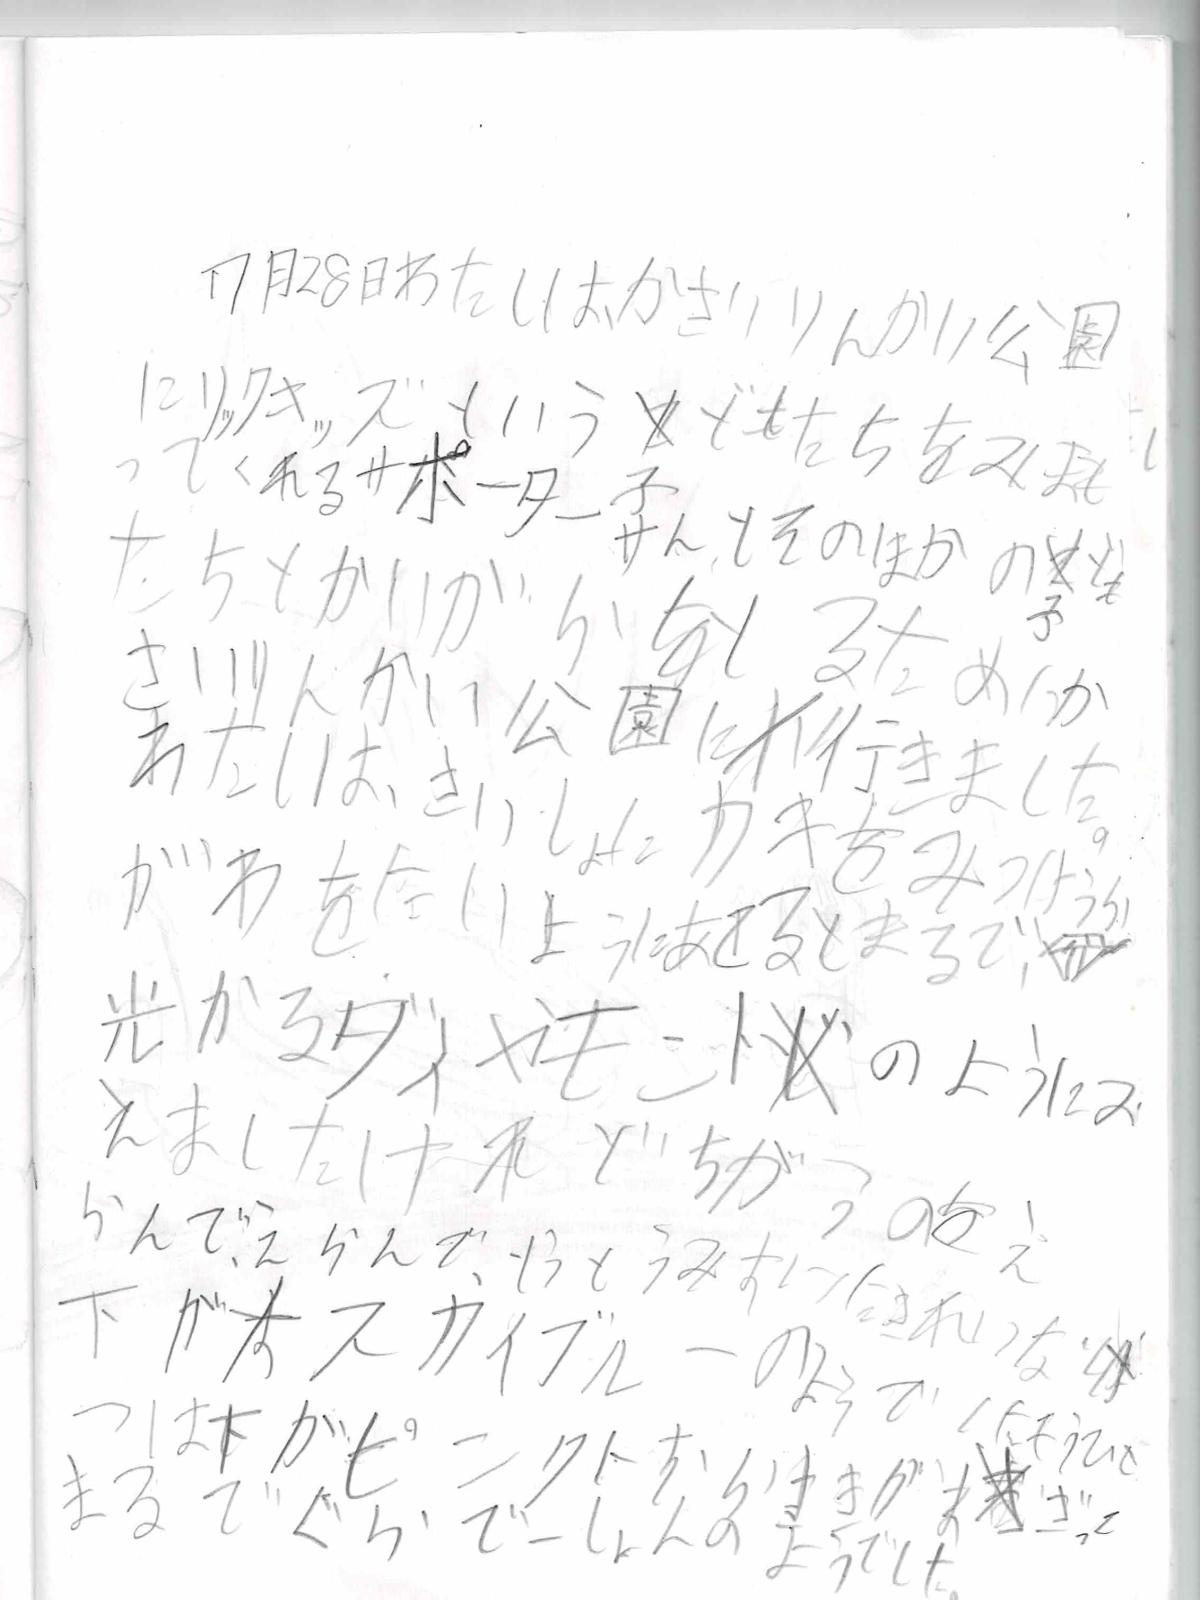 7月28日わたしは、かさいりんかい公園
にリックキッズという子どもたちをみまも
ってくれるサポーターさんとそのほかの子ども
たちとかいがらをとるためにか
さいりんかい公園に行きました。
わたしは、さいしょにカキをみつけうら
がわをたいようにあてるとまるで、
光かるダイヤモンドのようにみ
えましたけれどちがうのをえ
らんで、えらんで、やっと
下がスカイブルーのようで
つは下がピンクと
まるでぐらでーしょんのようでした。